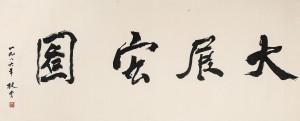 大展宏图
一九八六年 启功